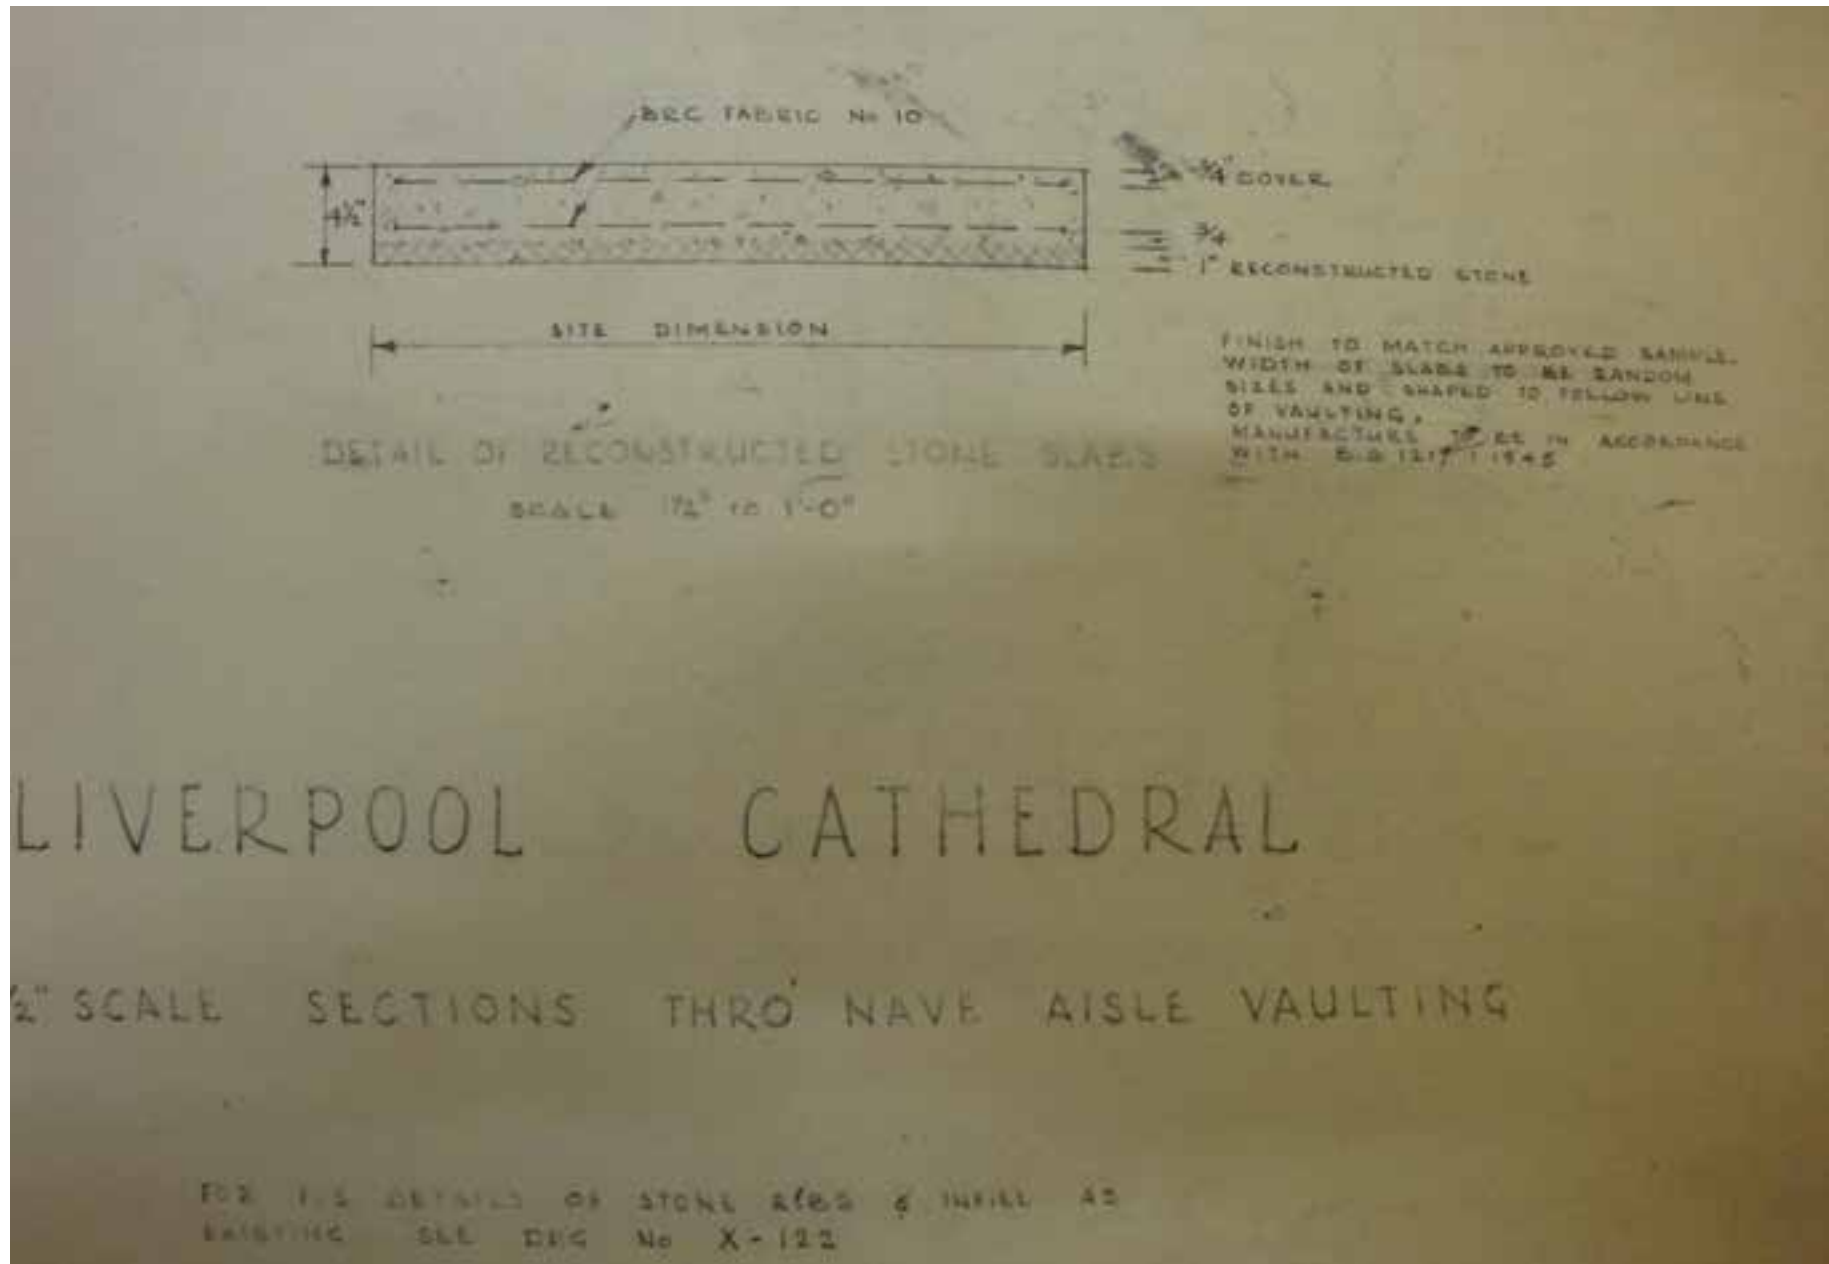 BRC FABRIC No 10
3/4" COVER
4½"
3/4
1" RECONSTRUCTED STONE
SITE DIMENSION
FINISH TO MATCH APPROVED SAMPLE.
WIDTH OF SLABS TO BE RANDOM
SIZES AND SHAPED TO FOLLOW LINE
OF VAULTING.
MANUFACTURE TO BE IN ACCORDANCE
WITH B.S 1217 : 1945
DETAIL OF RECONSTRUCTED STONE SLABS
SCALE 1½" TO 1'-0"
LIVERPOOL CATHEDRAL
½" SCALE SECTIONS THRO' NAVE AISLE VAULTING
FOR F.S DETAILS OF STONE RIBS & INFILL AS
EXISTING SEE DRG No X-122